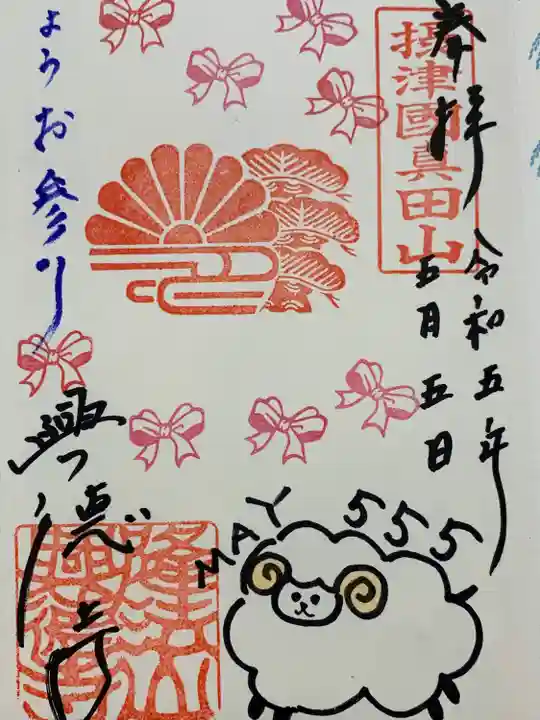 奉拝
摂津國真田山
令和五年
五月五日
ようお参り
興徳寺
MAY 555